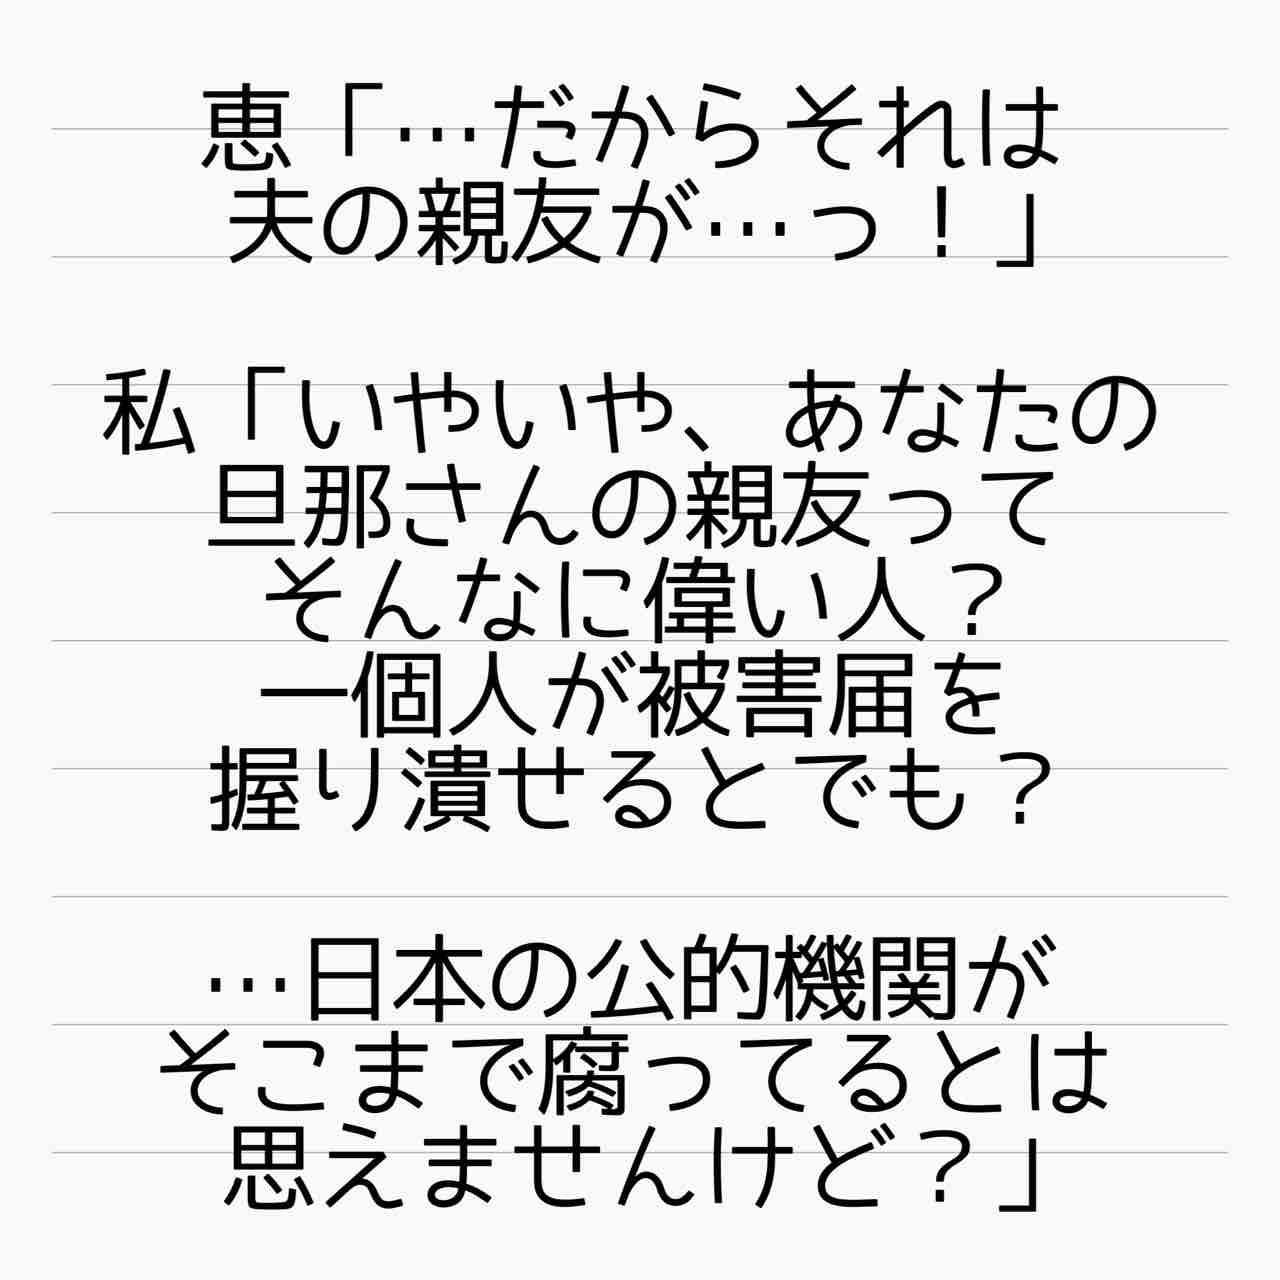 恵「…だからそれは
夫の親友が…っ！」
私「いやいや、あなたの
旦那さんの親友って
そんなに偉い人？
一個人が被害届を
握り潰せるとでも？
…日本の公的機関が
そこまで腐ってるとは
思えませんけど？」